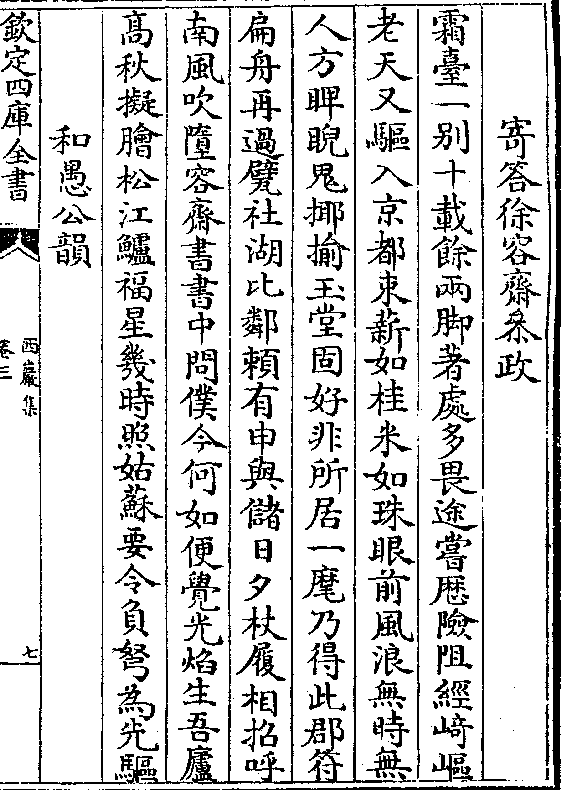 寄答徐容齋叅政
霜臺一别十載餘兩脚著處多畏途嘗歴險阻經﨑嶇
老天又驅入京都束薪如桂米如珠眼前風浪無時無
人方睥睨鬼揶揄玉堂固好非所居一麾乃得此郡符
扁舟再過甓社湖比鄰頼有申與儲日夕杖履相招呼
南風吹墮容齋書書中問僕今何如便覺光焰生吾廬
髙秋擬膾松江鱸福星幾時照姑蘇要令負弩為先驅
和愚公韻
欽定四庫全書
西巖集
卷三
七